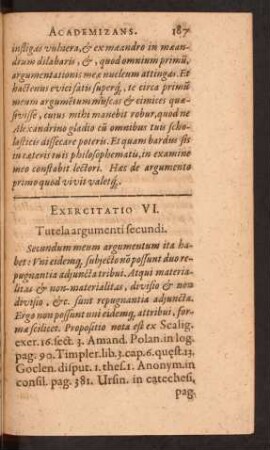 ACADEMIZANS. 187
infligas vulnera, & ex mæandro in mæan-
drum dilabaris, &, quod omnium primũ,
argumentationis meæ nucleum attingas. Et
hactenus evici satis superq́, te circa primũ
meum argumẽtum muscas & cimices quæ-
sivisse, cujus mihi manebit robur, quod ne
Alexandrino gladio cũ omnibus tuis scho-
lasticis dissecare poteris. Et quam bardus sis
in cæteris tuis philosophematis, in examine
meo constabit lectori. Hæc de argumento
primo quod vivit valetq́,.
EXERCITATIO VI.
Tutela argumenti secundi.
Secundum meum argumentum ita ha-
bet: Vni eidemq, subjecto nõ possunt duo re-
pugnantia adjuncta tribui. Atqui materia-
litas & non-materialitas, divisio & non
divisio, &c. sunt repugnantia adjuncta.
Ergo non possunt uni eidemq, attribui, for-
mæ scilicet. Propositio nota est ex Scalig.
exer. 16. sect. 3. Amand. Polan. in log.
pag. 90. Timpler. lib. 3. cap. 6. quęst. 13.
Goclen. disput. 1. thes. 1. Anonym. in
consil. pag. 381. Ursin. in catechesi,
pag.